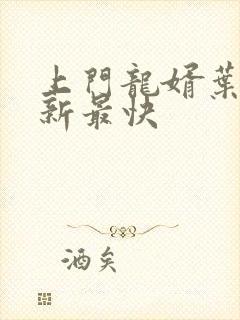 上門龍婿葉
新最快
酒矣